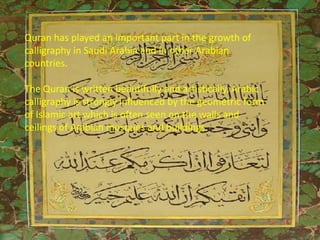 Quran has played an important part in the growth of
calligraphy in Saudi Arabia and in other Arabian
countries.
The Quran is written beautifully and artistically. Arabic
calligraphy is strongly influenced by the geometric form
of Islamic art which is often seen on the walls and
ceilings of Arabian mosques and buildings.
وأنثى
لتعارفوا إن أكرمكم عند الله
أتقيكم إن الله عليم خبير